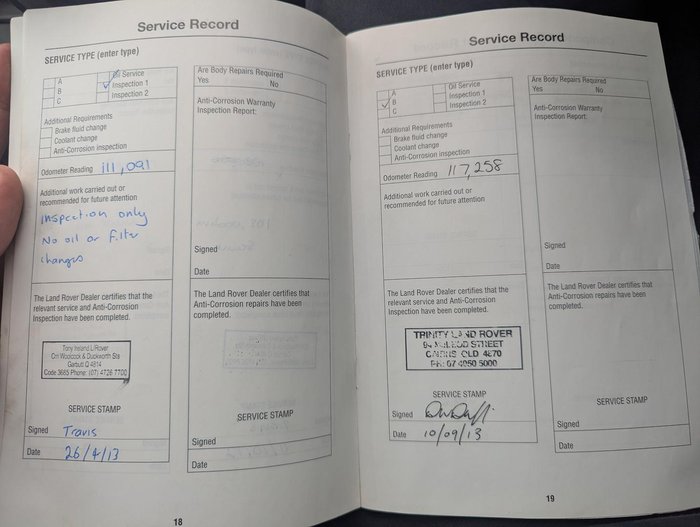 Service Record
SERVICE TYPE (enter type)
A
B
C
Oil Service
Inspection 1
Inspection 2
Additional Requirements
Brake fluid change
Coolant change
Anti-Corrosion inspection
Odometer Reading 111,091
Additional work carried out or
recommended for future attention
Inspection only
No oil or filter
changes
The Land Rover Dealer certifies that the
relevant service and Anti-Corrosion
Inspection have been completed.
Tony Ireland L/Rover
Cnr Woolcock & Duckworth Sts
Garbutt Q 4814
Code 3665 Phone: (07) 4726 7700
SERVICE STAMP
Signed Travis
Date 26/4/13
Are Body Repairs Required
Yes No
Anti-Corrosion Warranty
Inspection Report:
Signed
Date
The Land Rover Dealer certifies that
Anti-Corrosion repairs have been
completed.
SERVICE STAMP
Signed
Date
18
Service Record
SERVICE TYPE (enter type)
A
B
C
Oil Service
Inspection 1
Inspection 2
Additional Requirements
Brake fluid change
Coolant change
Anti-Corrosion inspection
Odometer Reading 117,258
Additional work carried out or
recommended for future attention
The Land Rover Dealer certifies that the
relevant service and Anti-Corrosion
Inspection have been completed.
TRINITY LAND ROVER
94 McLEOD STREET
CAIRNS QLD 4870
PH: 07 4050 5000
SERVICE STAMP
Signed
Date 10/09/13
Are Body Repairs Required
Yes No
Anti-Corrosion Warranty
Inspection Report:
Signed
Date
The Land Rover Dealer certifies that
Anti-Corrosion repairs have been
completed.
SERVICE STAMP
Signed
Date
19